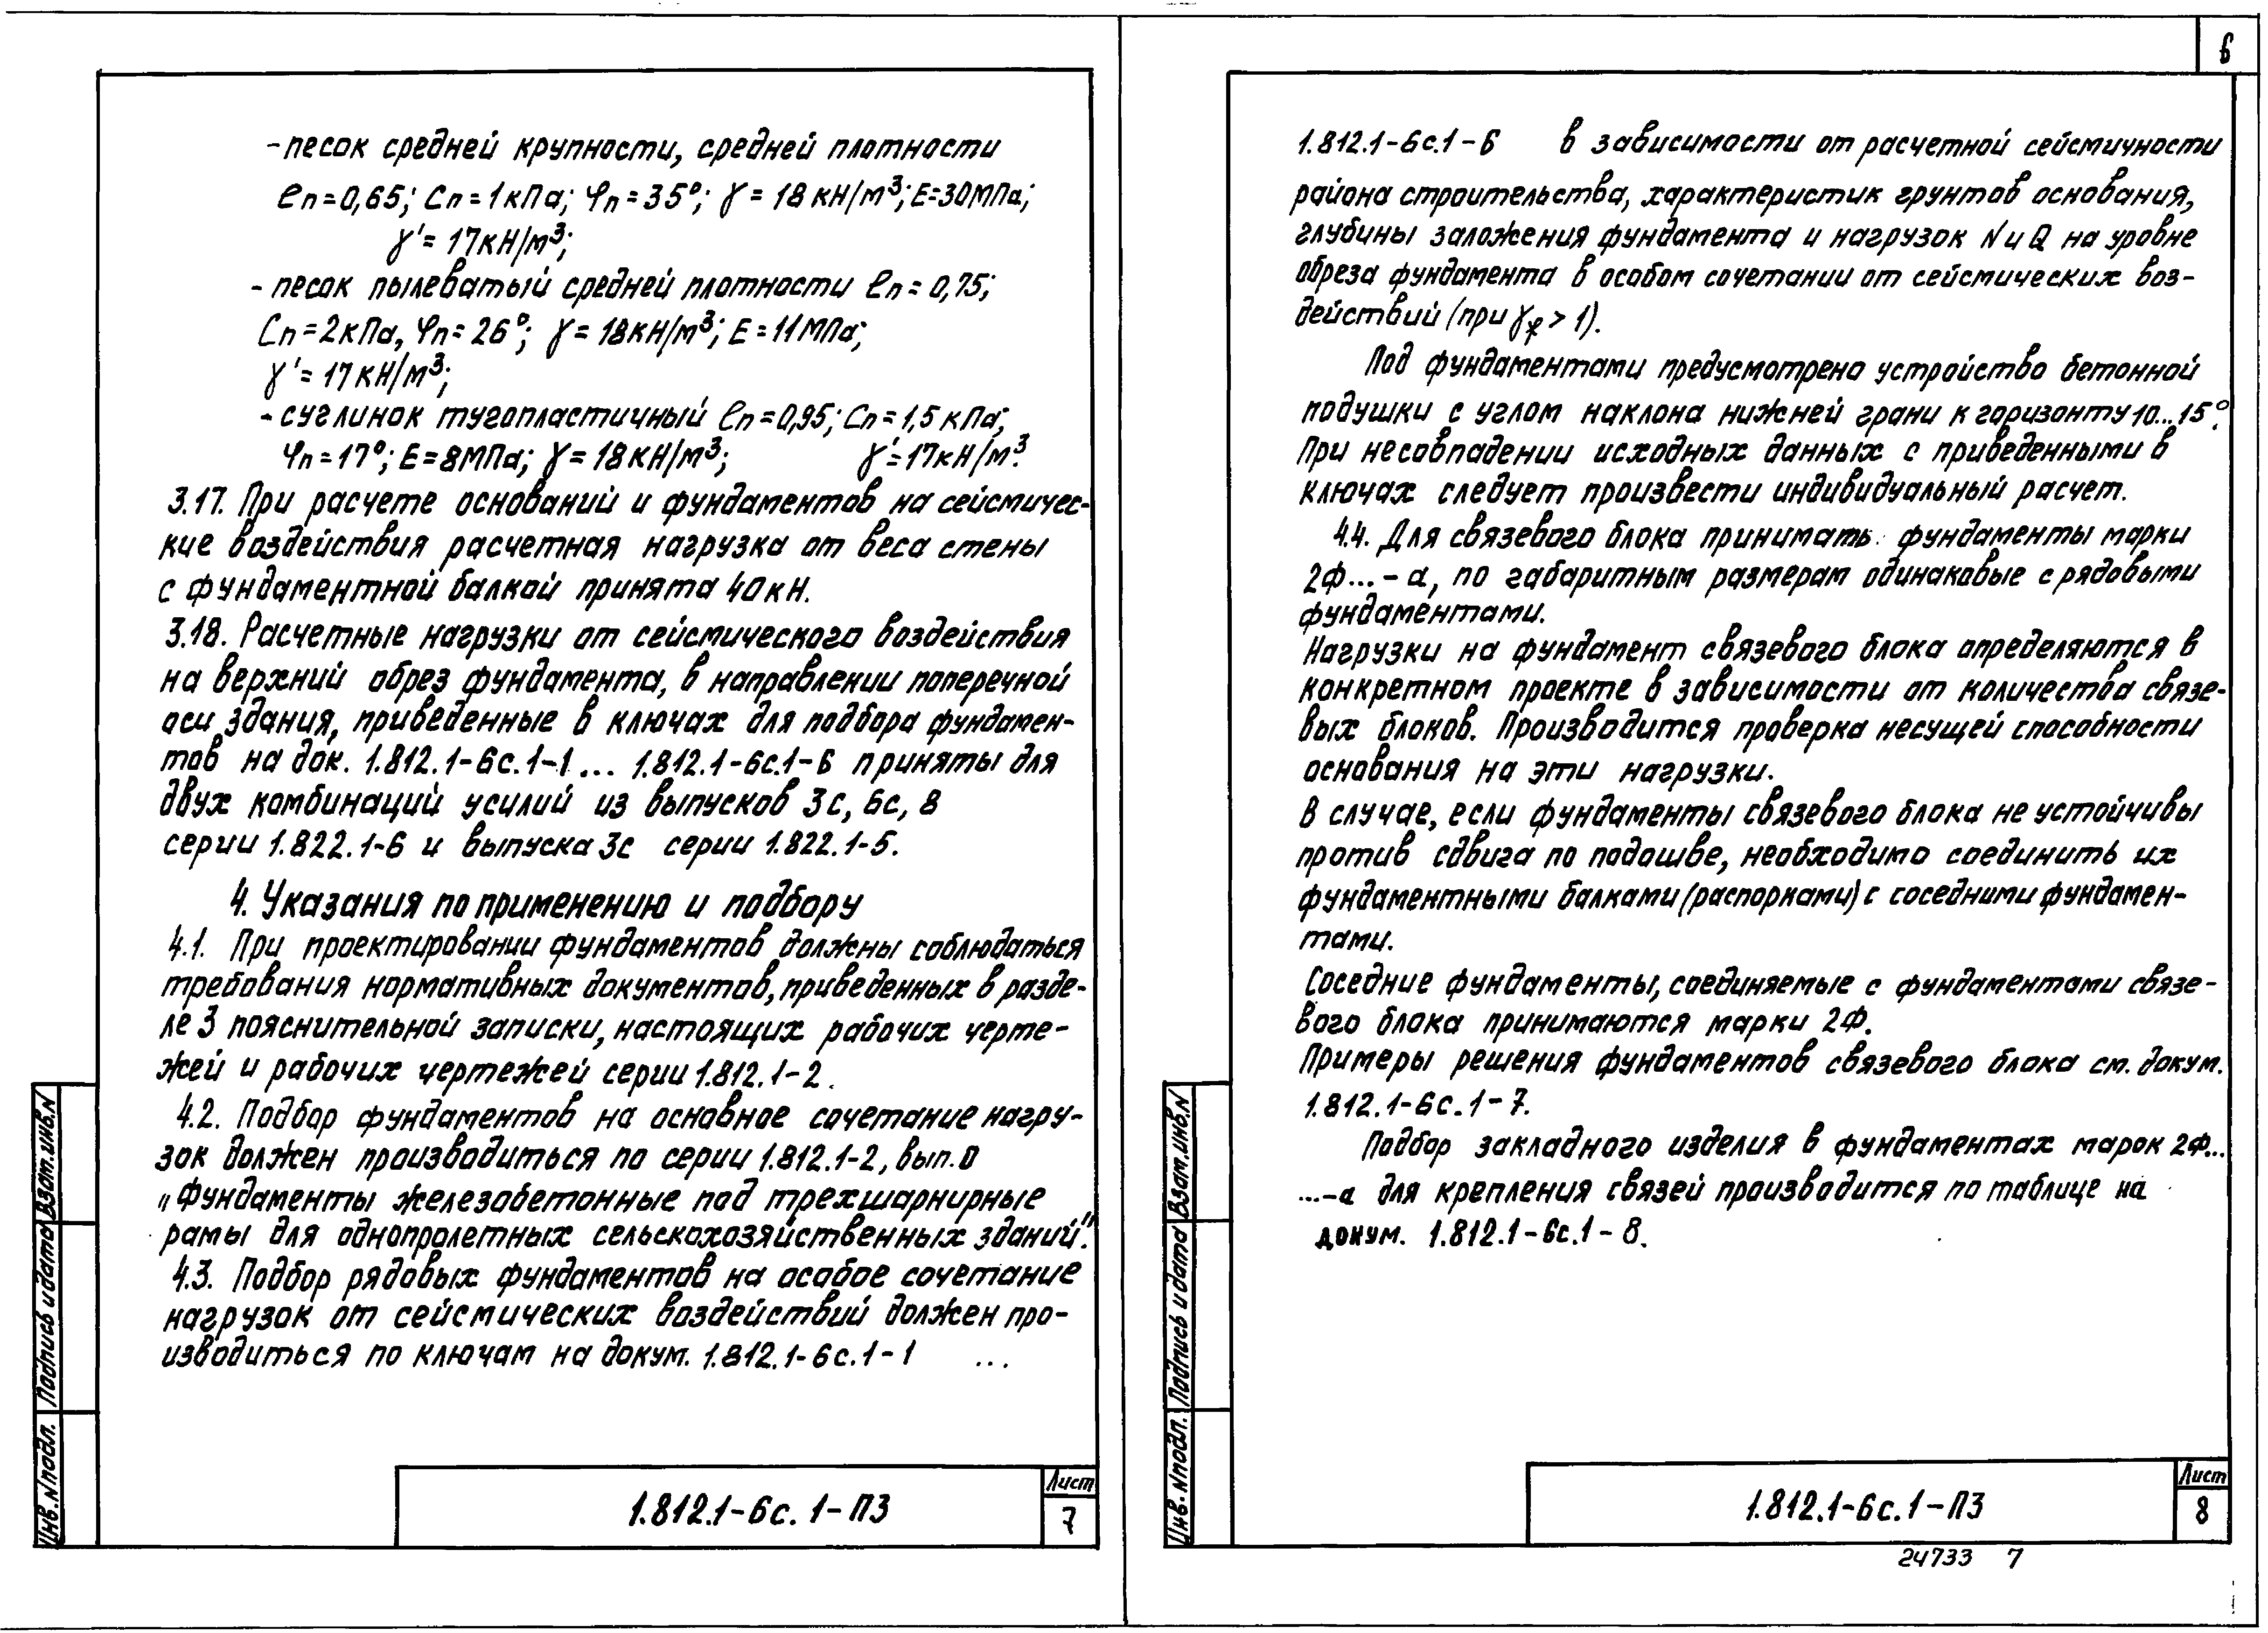 -песок средней крупности, средней плотности
еп=0,65; Сп=1кПа; φп=35°; γ=18кН/м³; Е=30МПа;
γ'=17кН/м³;
-песок пылеватый средней плотности еп=0,75;
Сп=2кПа, φп=26°; γ=18кН/м³; Е=11МПа;
γ'=17кН/м³;
-суглинок тугопластичный еп=0,95; Сп=1,5кПа;
φп=17°; Е=8МПа; γ=18кН/м³; γ'=17кН/м³.
3.17. При расчете оснований и фундаментов на сейсмичес-
кие воздействия расчетная нагрузка от веса стены
с фундаментной балкой принята 40кН.
3.18. Расчетные нагрузки от сейсмического воздействия
на верхний обрез фундамента, в направлении поперечной
оси здания, приведенные в ключах для подбора фундамен-
тов на док. 1.812.1-6с.1-1... 1.812.1-6с.1-6 приняты для
двух комбинаций усилий из выпусков 3с, 6с, 8
серии 1.822.1-6 и выпуска 3с серии 1.822.1-5.
4. Указания по применению и подбору
4.1. При проектировании фундаментов должны соблюдаться
требования нормативных документов, приведенных в разде-
ле 3 пояснительной записки, настоящих рабочих черте-
жей и рабочих чертежей серии 1.812.1-2.
4.2. Подбор фундаментов на основное сочетание нагру-
зок должен производиться по серии 1.812.1-2, вып.0
„Фундаменты железобетонные под трехшарнирные
рамы для однопролетных сельскохозяйственных зданий".
4.3. Подбор рядовых фундаментов на особое сочетание
нагрузок от сейсмических воздействий должен про-
изводиться по ключам на докум. 1.812.1-6с.1-1 ...
Инв.Nподл. Подпись и дата Взам.инв.N
1.812.1-6с.1-ПЗ
Лист
7
6
1.812.1-6с.1-6 в зависимости от расчетной сейсмичности
района строительства, характеристик грунтов основания,
глубины заложения фундамента и нагрузок N и Q на уровне
обреза фундамента в особом сочетании от сейсмических воз-
действий (при γf > 1).
Под фундаментами предусмотрено устройство бетонной
подушки с углом наклона нижней грани к горизонту 10...15°.
При несовпадении исходных данных с приведенными в
ключах следует произвести индивидуальный расчет.
4.4. Для связевого блока принимать фундаменты марки
2Ф...-а, по габаритным размерам одинаковые с рядовыми
фундаментами.
Нагрузки на фундамент связевого блока определяются в
конкретном проекте в зависимости от количества связе-
вых блоков. Производится проверка несущей способности
основания на эти нагрузки.
В случае, если фундаменты связевого блока не устойчивы
против сдвига по подошве, необходимо соединить их
фундаментными балками (распорками) с соседними фундамен-
тами.
Соседние фундаменты, соединяемые с фундаментами связе-
вого блока принимаются марки 2Ф.
Примеры решения фундаментов связевого блока см. докум.
1.812.1-6с.1-7.
Подбор закладного изделия в фундаментах марок 2Ф...
...-а для крепления связей производится по таблице на
докум. 1.812.1-6с.1-8.
Инв.Nподл. Подпись и дата Взам.инв.N
1.812.1-6с.1-ПЗ
Лист
8
24733 7